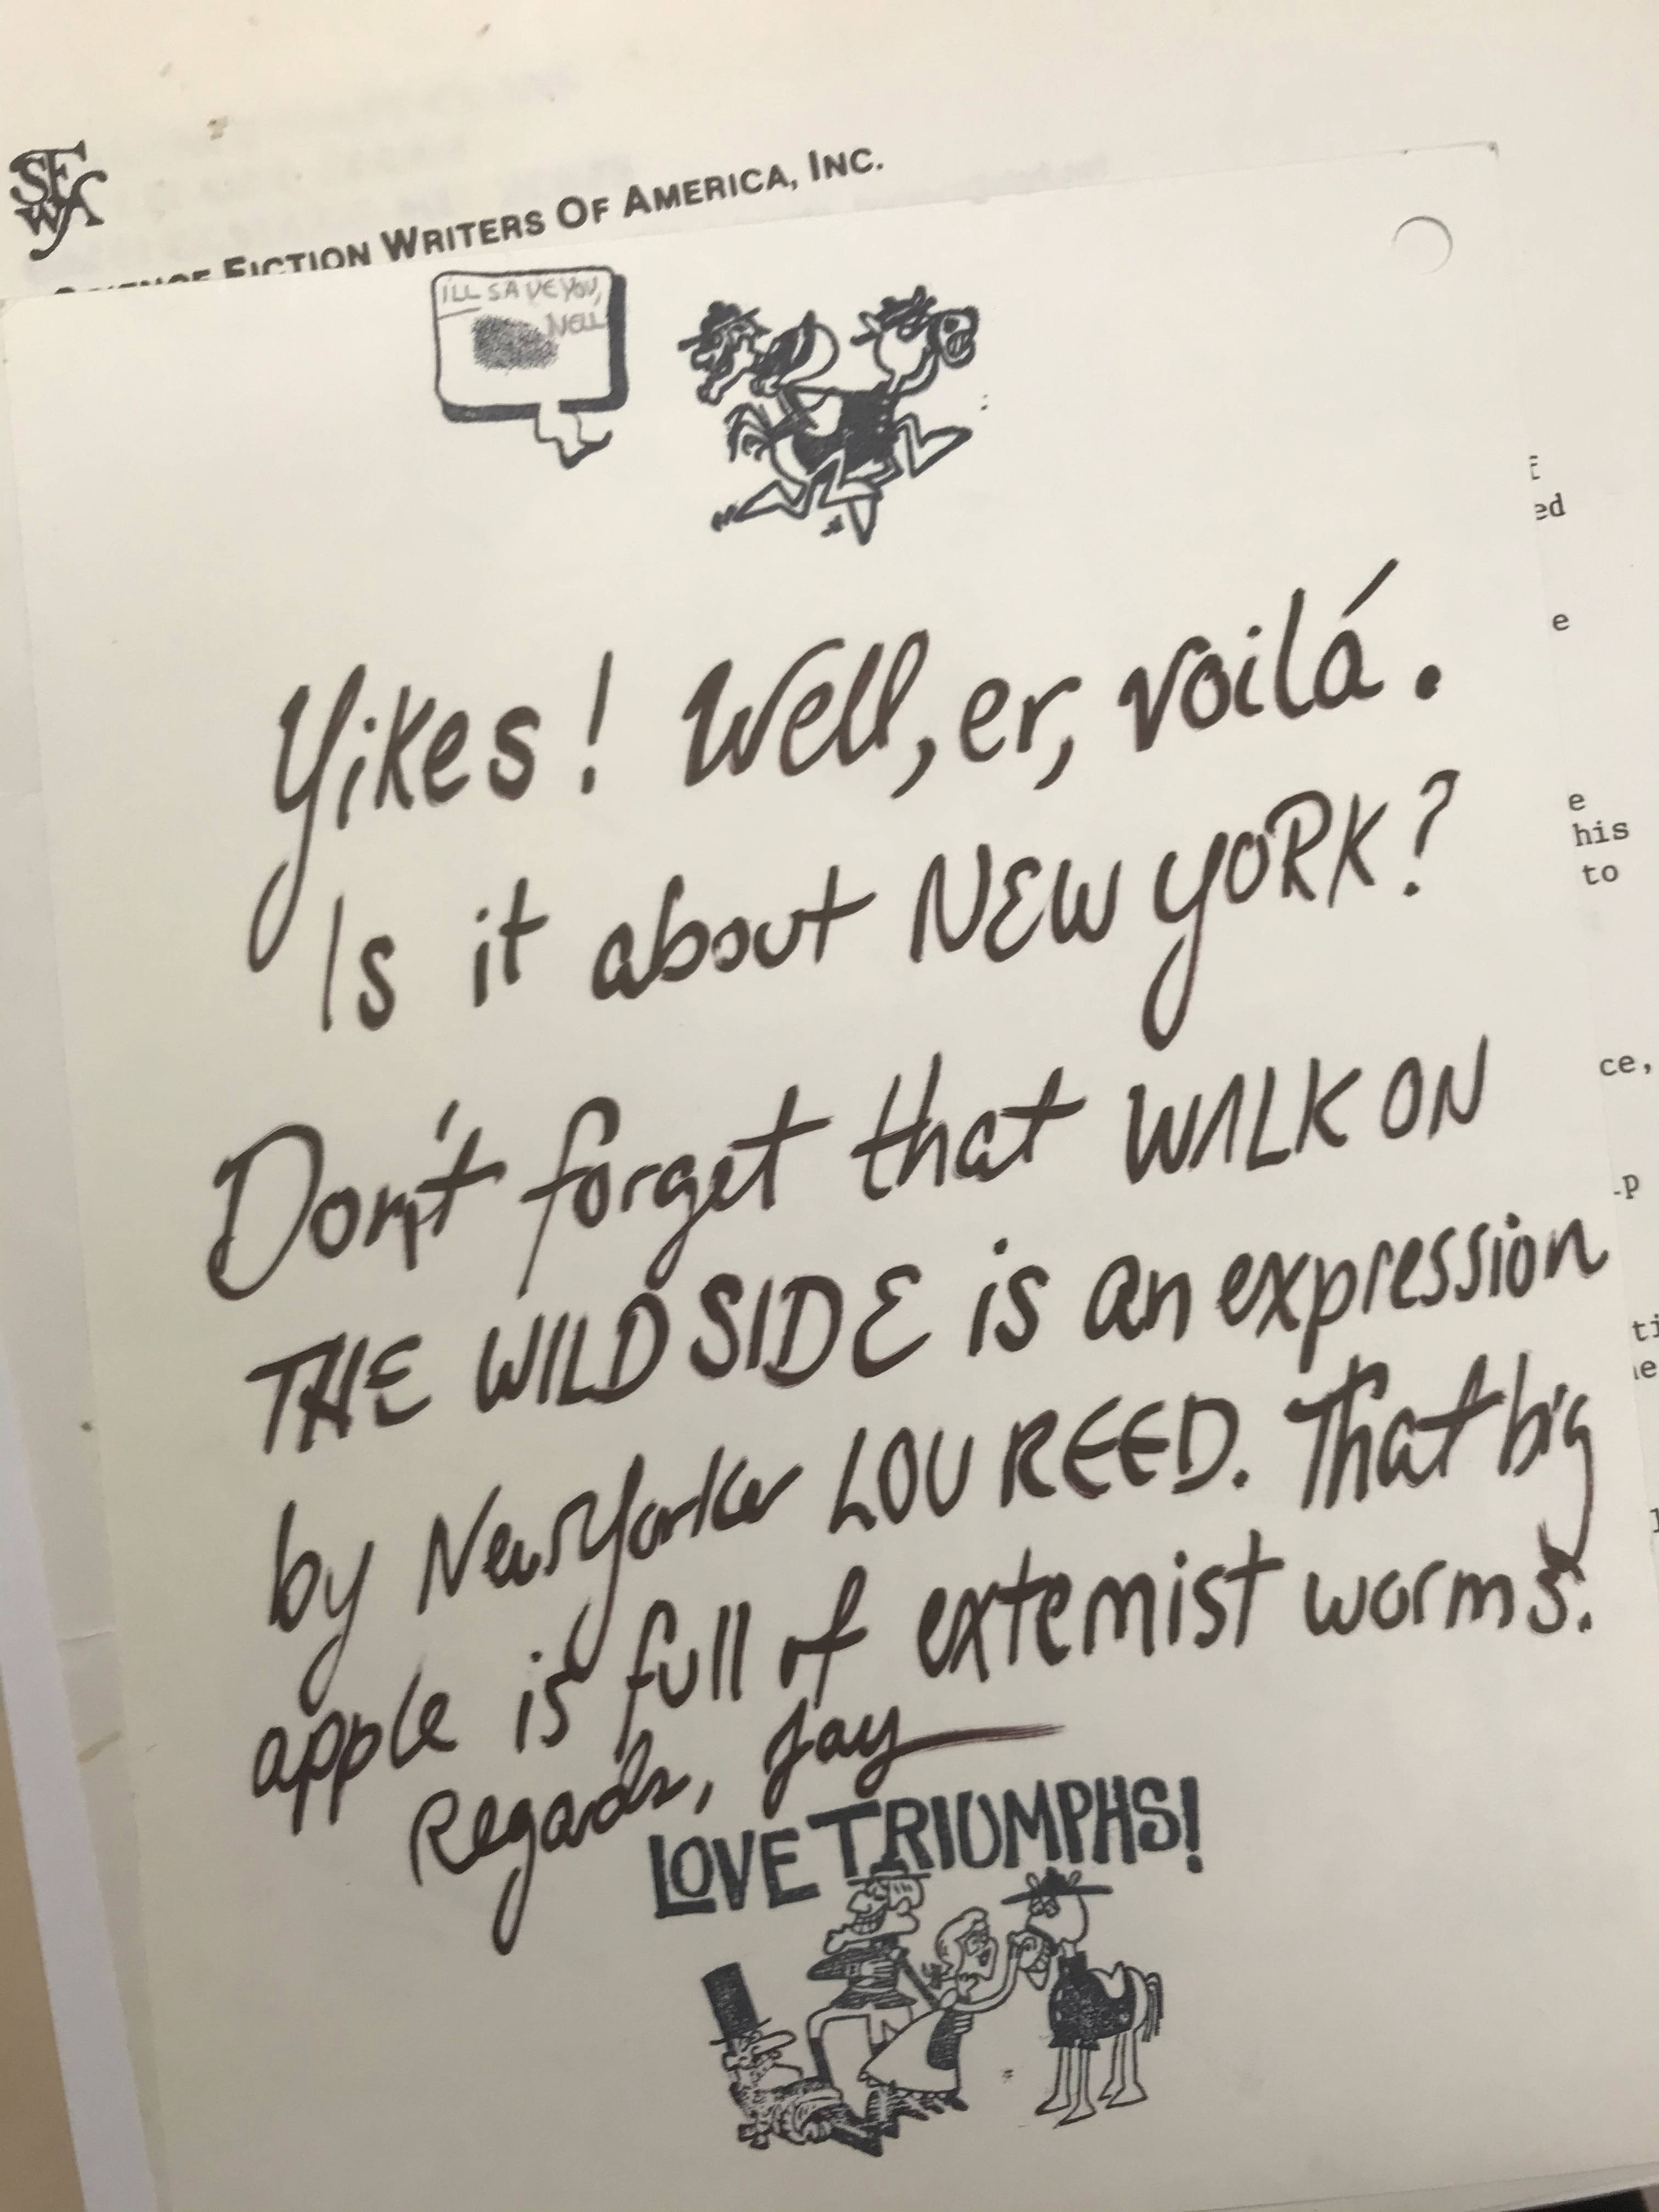 SFWA
SCIENCE FICTION WRITERS OF AMERICA, INC.
I'LL SAVE YOU,
NELL
Yikes! Well, er, voilá.
Is it about NEW YORK?
Don't forget that WALK ON
THE WILD SIDE is an expression
by New Yorker LOU REED. That big
apple is full of extemist worms.
Regards, Jay
LOVE TRIUMPHS!
ed
e
e
his
to
ce,
p
ti